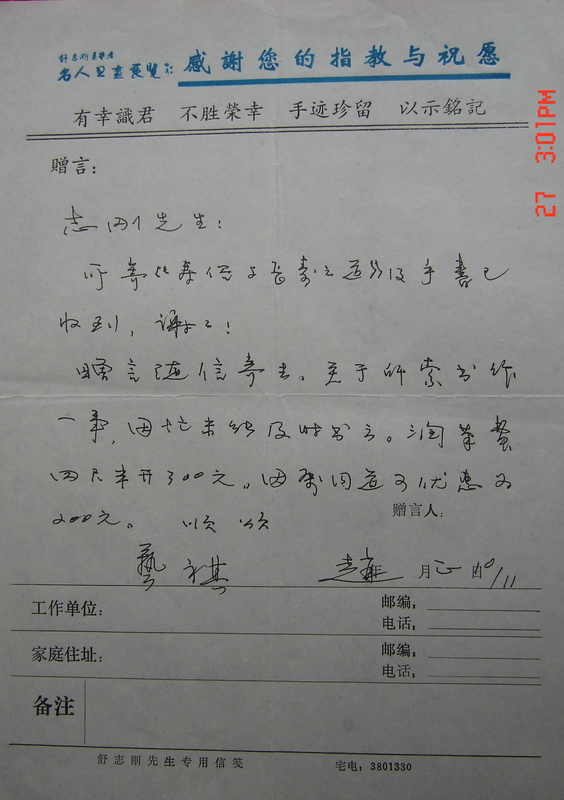 舒志刚
名人 览 感謝您的指教与祝愿
有幸識君 不胜榮幸 手迹珍留 以示銘記
27 3:01PM
赠言:
志刚先生:
所寄 长寿之道 及手書已
收到,谢谢!
赠言随信寄去。关于所索书作
一事,因忙未能及时书之。润笔费
四尺半开300元。因属同道可优惠为
200元。 顺颂
赠言人:
藝祺
月 11
工作单位: 邮编:
电话:
家庭住址: 邮编:
电话:
备注
舒志刚先生专用信笺 宅电:3801330